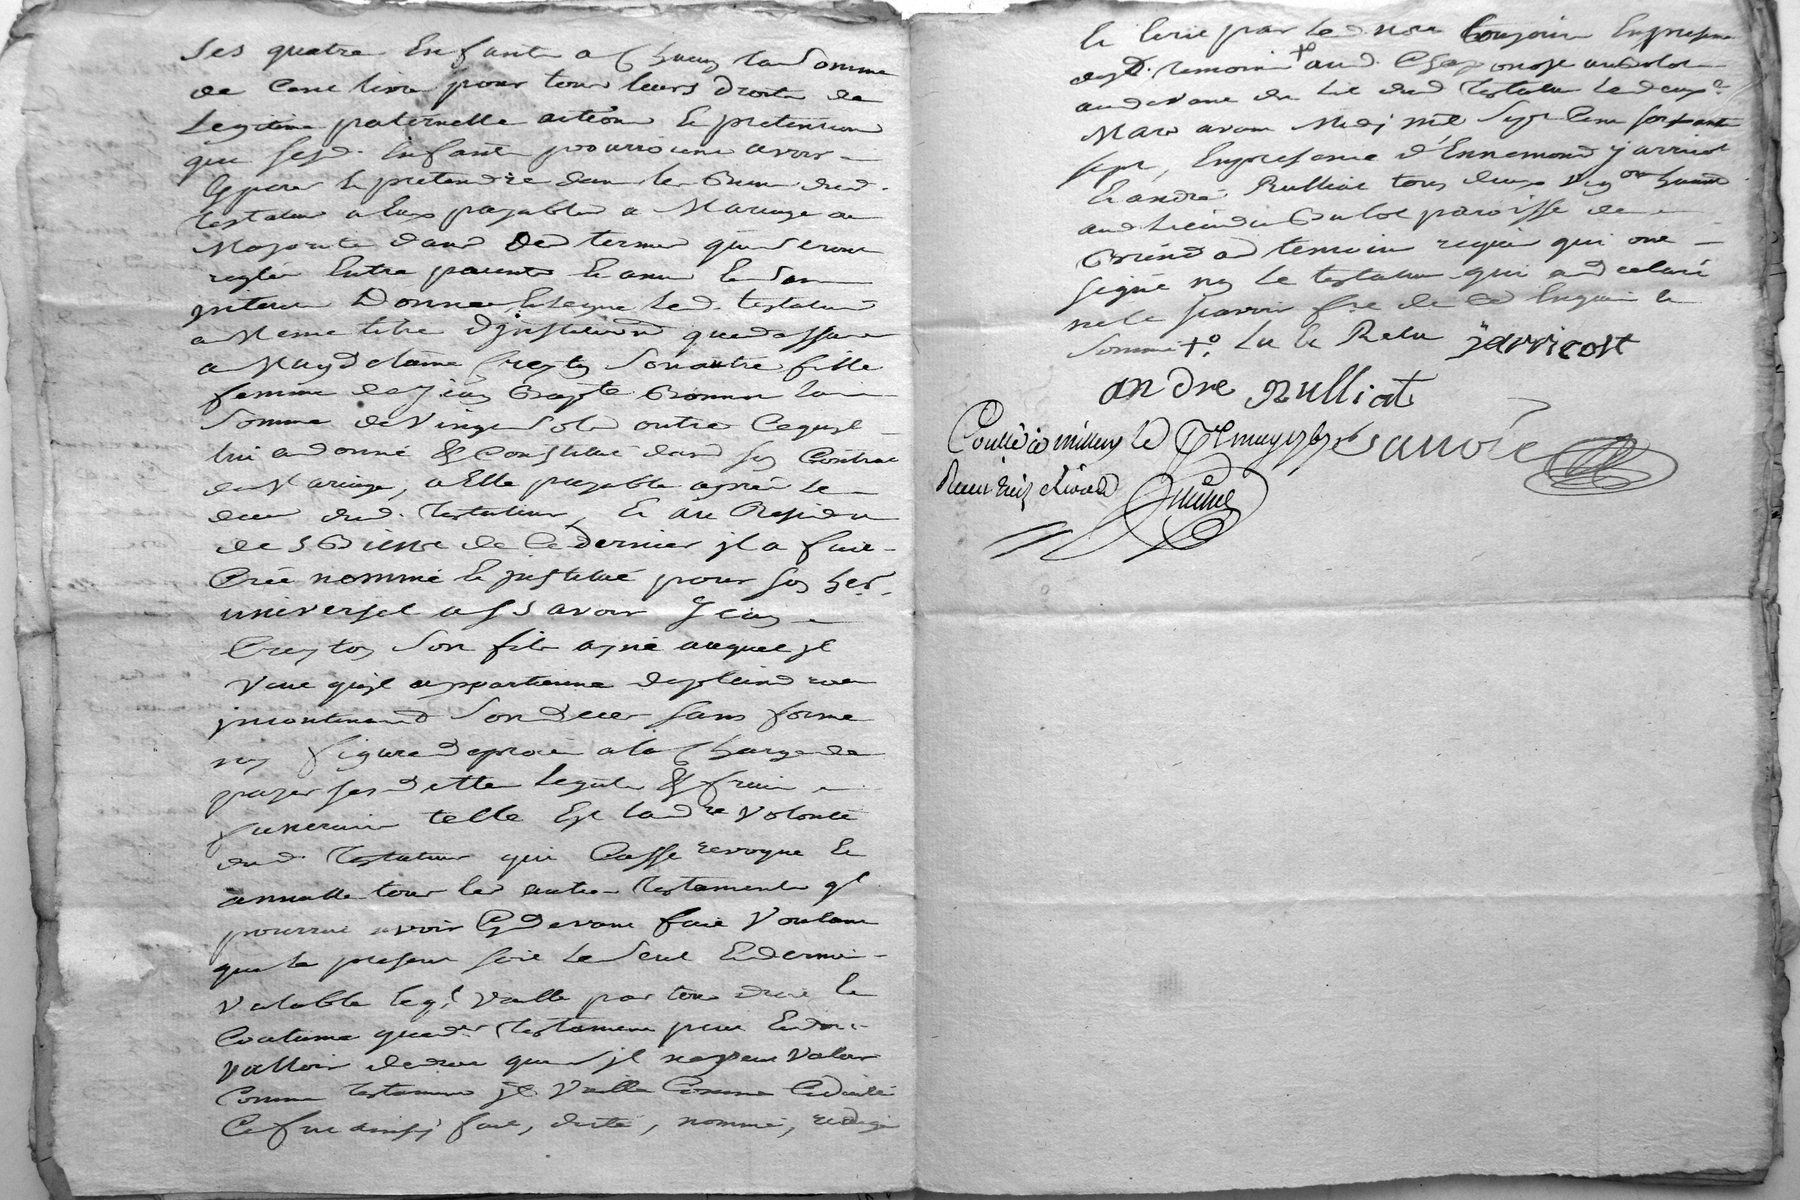 ses quatre Enfants a Chacun la Somme
de Cent livres pour tous leurs droits de
Legitime paternelle action & pretention
que sesd. Enfants pourroient avoir
Esperer & pretendre dans les Biens dud.
testateur a Eux payable a Mariage ou
Majorité dans des termes qui seront
reglés Entre parents & amis
Donne & Legue led. testateur
a Meme titre d'jnstitution que dessus
a Magdelaine Creyton Son autre fille
femme de Jean Bapte la
Somme de Vingt Sols outre Ce qu'jl
lui a donné & Constitué dans son Contrat
de Mariage, a Elle payable après le
deces dud. testateur, & au Residu
de s Biens de Ce dernier jl a fait
Créé nommé & jnstitué pour son her.
universel assavoir Jean
Creyton Son fils ayné auquel jl
Veut qu'jl appartienne de plein droit
jncontinent Son deces sans forme
ny figure de procès a la Charge de
payer ses dettes Legats & frais
funeraires telle Est la dre Volonté
dud. testateur qui Casse revoque &
annulle tous les autres testaments qu'jl
pourroit avoir Cy devant fait Voulant
que le present soit le Seul & dernier
Valable & qu'jl Vaille par tous droits &
Coutumes que dr testament peut & doit
Valloir de droit que s'jl ne peut Valoir
Comme testament jl Vaille Comme Codicille
Ce fut ainsy fait, dicté, nommé, redigé
& Ecrit par led. nore toujours En presence
desd. temoins +o aud. Chaponost
au devant du Lit dud. testateur Le deux.e
Mars avant Midj Mil Sept Cent soixante
sept, En presence d'Ennemond jarricot
& andré Rulliat tous deux Vignerons habitants
aud. lieu du Boulot paroisse de
Brindas temoins requis qui ont
signé non Le testateur qui a declaré
ne le scavoir fre de Ce Enquis &
Sommé +o. Lu & Relu jarricost
andre Rulliat
Contlé a millery le
Reçu six livres